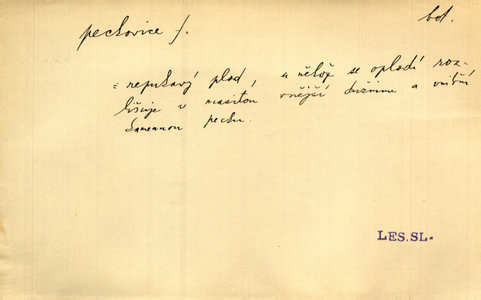 peckovice f.
bot.
= nepukavý plod, u něhož se oplodí roz-
lišuje v masitou vnější dužninu a vnitřní
kamennou pecku.
LES. SL.